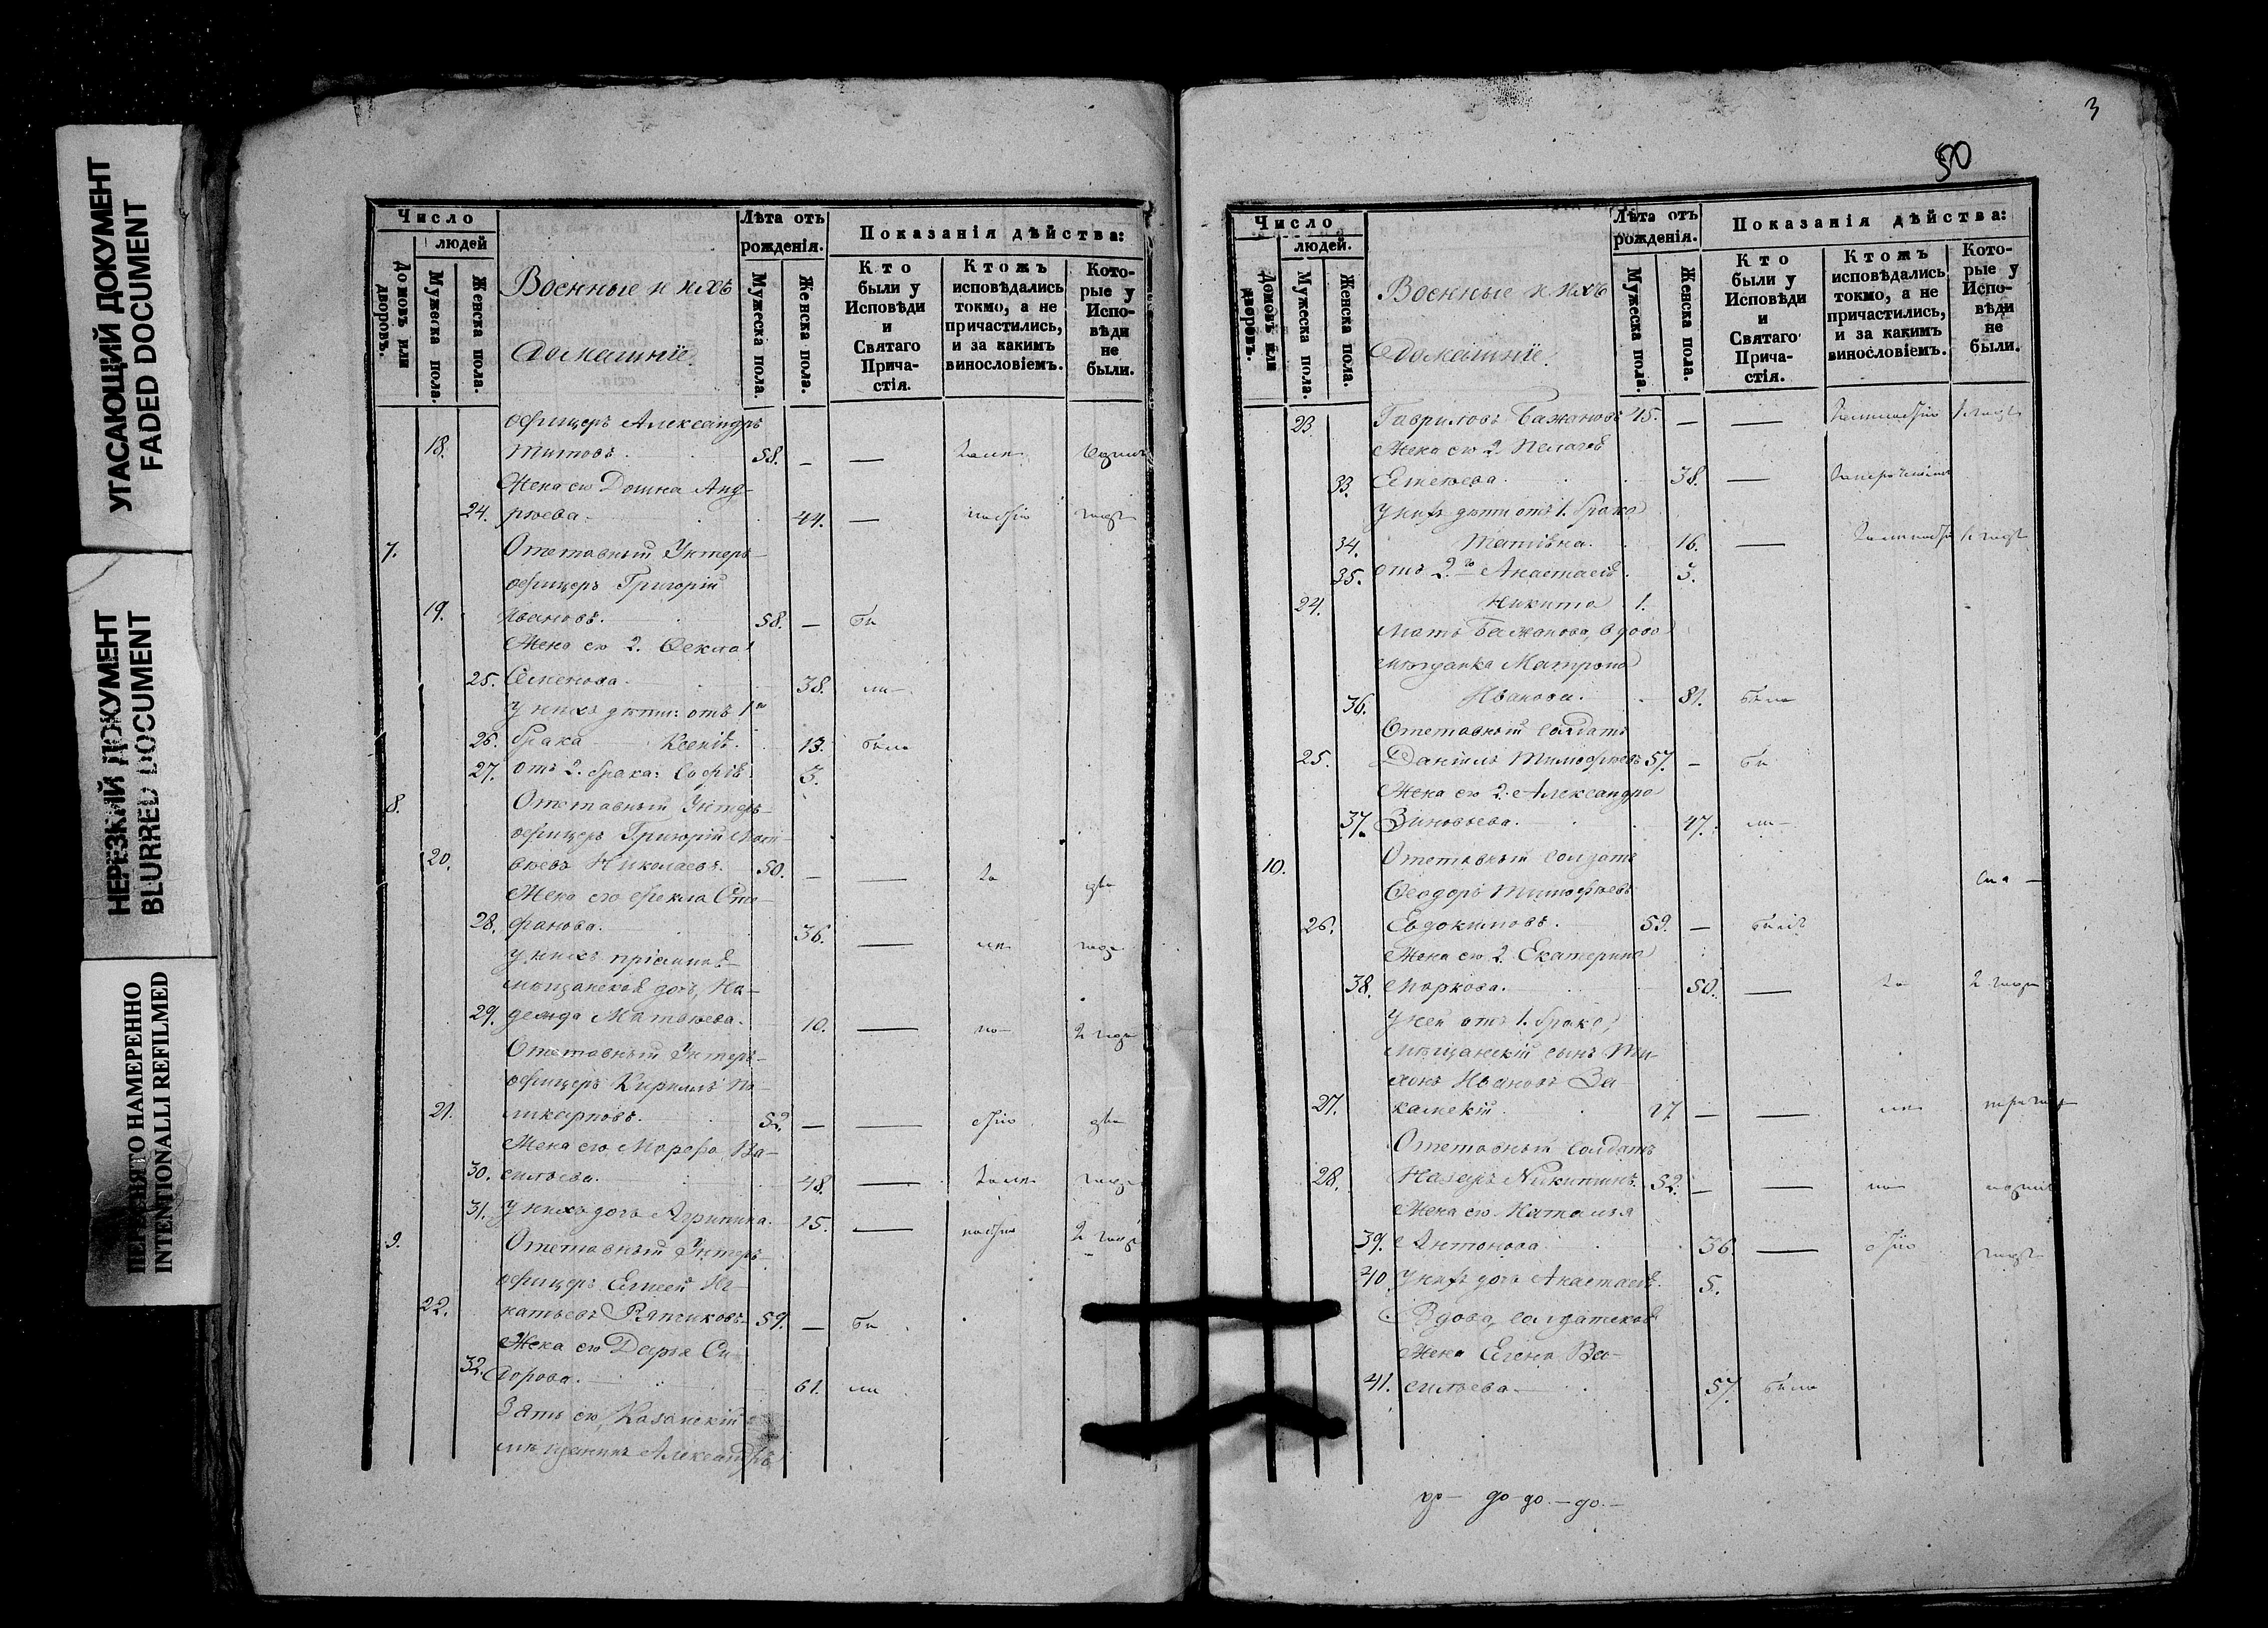 УГАСАЮЩИЙ ДОКУМЕНТ
FADED DOCUMENT
НЕРЕЗКИЙ ДОКУМЕНТ
BLURRED DOCUMENT
ПЕРЕСНЯТО НАМЕРЕННО
INTENTIONALLI REFILMED
Число
людей
Домовъ или дворовъ.
Мужеска пола.
Женска пола.
Военные и ихъ
Домашніе.
Лѣта отъ
рожденія.
Мужеска пола.
Женска пола.
Показанія дѣйства:
Кто
были у
Исповѣди
и
Святаго
Прича-
стія.
Ктожъ
исповѣдались
токмо, а не
причастились,
и за какимъ
винословіемъ.
Кото-
рые у
Испо-
вѣди
не
были.
офицеръ Александръ
18. Титовъ. 58. — —
Жена его Домна Анд-
24. рѣева. 44. —
7. Отставный Унтеръ-
офицеръ Григорій
19. Ивановъ. 58. — би
Жена его 2. Фекла
25. Семенова. 38. ли
у нихъ дѣти: отъ 1го
26. брака Ксенія. 13. была
27. отъ 2. брака: Софія. 3.
8. Отставный Унтеръ-
офицеръ Григорій Мат-
20. вѣевъ Николаевъ. 50. — —
Жена его Фекла Сте-
28. фанова. 36. —
у нихъ пріемная
мѣщанская дочь, На-
29. дежда Матвѣева. 10. — 2 года
Отставный Унтеръ-
офицеръ Кириллъ По-
21. ликарповъ. 52. — —
Жена его, Марфа Ва-
30. сильева. 48. —
31. у нихъ дочь Агрипина. 15. —
9. Отставный Унтеръ-
офицеръ Елисей Иг-
22. натьевъ Ряпчиковъ. 59. — би
Жена его Дарья Си-
32. дорова. 61. ли
Зять его, Казанскій
мѣщанинъ Александръ
3
50
Число
людей.
Домовъ или дворовъ.
Мужеска пола.
Женска пола.
Военные и ихъ
Домашніе.
Лѣта отъ
рожденія.
Мужеска пола.
Женска пола.
Показанія дѣйства:
Кто
были у
Исповѣди
и
Святаго
Прича-
стія.
Ктожъ
исповѣдались
токмо, а не
причастились,
и за какимъ
винословіемъ.
Кото-
рые у
Испо-
вѣди
не
были.
23. Гавриловъ Бажановъ 45. — —
Жена его 2. Пелагея
33. Евтеѣева. 38. —
у нихъ дѣти отъ 1. брака
34. Татіяна. 16. —
35. отъ 2го Анастасія. 3.
24. Никита 1.
Мать Бажанова, вдова
мѣщанка Матрона
36. Иванова. 81. была
Отставный солдатъ
25. Даніилъ Тимофѣевъ 57. — би
Жена его 2. Александра
37. Зиновьева. 47. ли
10. Отставный солдатъ
Ѳеодоръ Тимофѣевъ
26. Евдокимовъ. 59. — былъ
Жена его 2. Екатерина
38. Маркова. 50. —
у ней отъ 1. брака,
мѣщанскій сынъ Ти-
хонъ Ивановъ За-
27. камскій. 17 — —
Отставный солдатъ
28. Назаръ Никитинъ. 52. — —
Жена его Наталья
39. Антонова 36. —
40 у нихъ дочь Анастасія. 5.
Вдова, солдатская
жена Елена Ва-
41. сильева 57. была